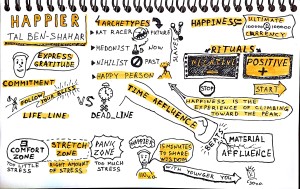 HAPPIER
TAL BEN-SHAHAR
EXPRESS
GRATITUDE
COMMITMENT
FOLLOW
YOUR BLISS
LIFE_LINE
VS
DEAD_LINE
4 ARCHETYPES
RAT RACER
FUTURE
HEDONIST
NOW
NIHILIST
PAST
HAPPY PERSON
SLAVES
HAPPINESS=
ULTIMATE
CURRENCY
RITUALS
NEGATIVE
-
POSITIVE
+
STOP
START
HAPPINESS IS THE EXPERIENCE OF CLIMBING
TOWARD THE PEAK.
TIME AFFLUENCE
MATERIAL
AFFLUENCE
BEATS
COMFORT
ZONE
TOO LITTLE
STRESS
STRETCH
ZONE
RIGHT AMOUNT
OF STRESS
PANIC
ZONE
TOO MUCH
STRESS
HAPPIER
15 MINUTES
TO SHARE
WISDOM
WITH YOUNGER YOU